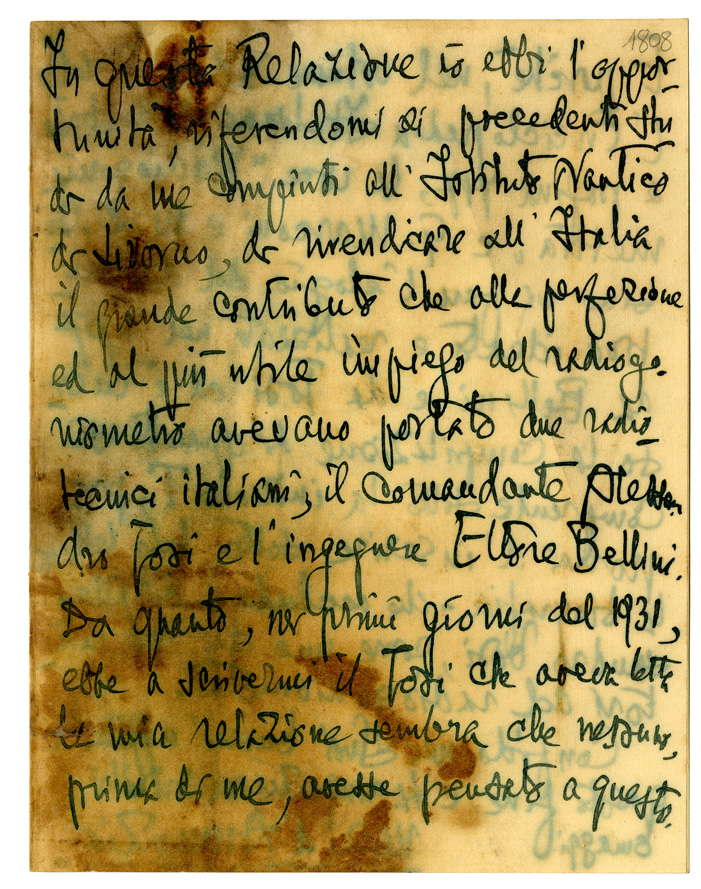 1808
In questa Relazione io ebbi l'oppor-
tunità, riferendomi ai precedenti stu
di da me compiuti all'Istituto Nautico
di Livorno, di rivendicare all'Italia
il grande contributo che alla perfezione
ed al più utile impiego del radiogo-
niometro avevano portato due radio-
tecnici italiani, il comandante Alessan
dro Tosi e l'ingegnere Ettore Bellini.
Da quanto, nei primi giorni del 1931,
ebbe a scrivermi il Tosi che aveva letta
la mia relazione sembra che nessuno,
prima di me, avesse pensato a questo.